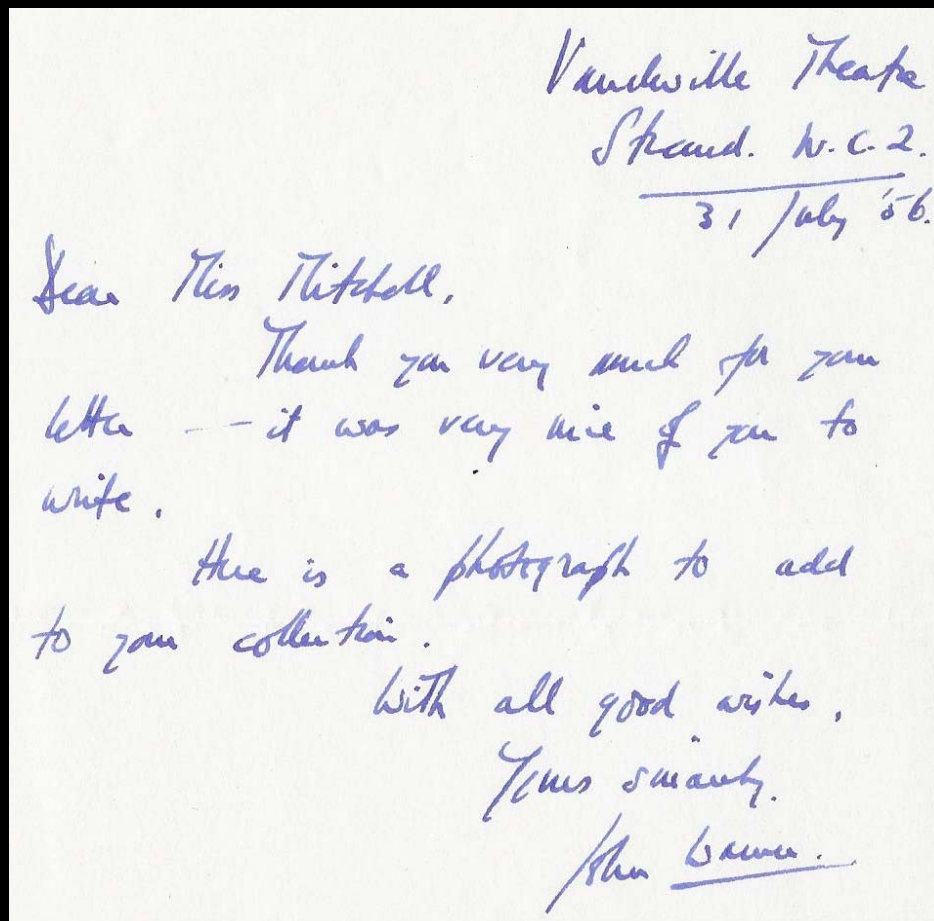 Vaudeville Theatre
Strand. W.C.2.
31 July '56.
Dear Miss Mitchell,
Thank you very much for your
letter -- it was very nice of you to
write.
Here is a photograph to add
to your collection.
With all good wishes,
Yours sincerely,
John Warner.